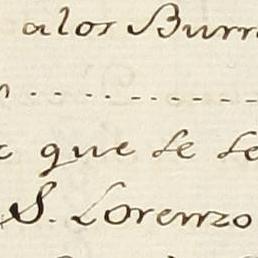 alos Burr
que se se
S. Lorenzo